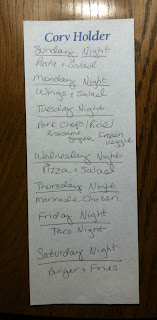 Cory Holder
Sunday Night
Pasta & Salad
Monday Night
Wings & Salad
Tuesday Night
Pork Chops/Rice/
Sesame Frozen
ginger Veggie
Wednesday Night
Pizza & Salad
Thursday Night
marinade Chicken
Friday Night
Taco Night
Saturday Night
Burger & Fries